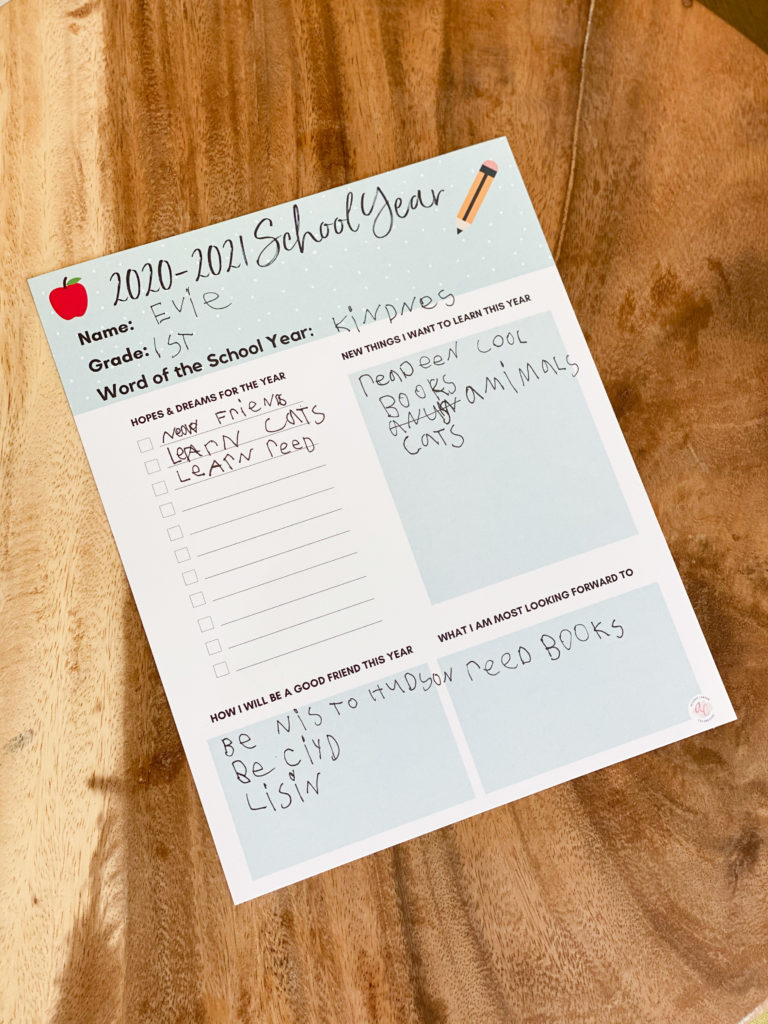 2020-2021 School Year
Name: Evie
Grade: 1ST
Word of the School Year: KINDNES
HOPES & DREAMS FOR THE YEAR
New FrienD
LeArN CATS
LeArN reeD
NEW THINGS I WANT TO LEARN THIS YEAR
COOL
BOOKS
aNiMALS
CATS
HOW I WILL BE A GOOD FRIEND THIS YEAR
Be NiS TO HUDSON
Be CiYD
LiSiN
WHAT I AM MOST LOOKING FORWARD TO
reeD BOOKS